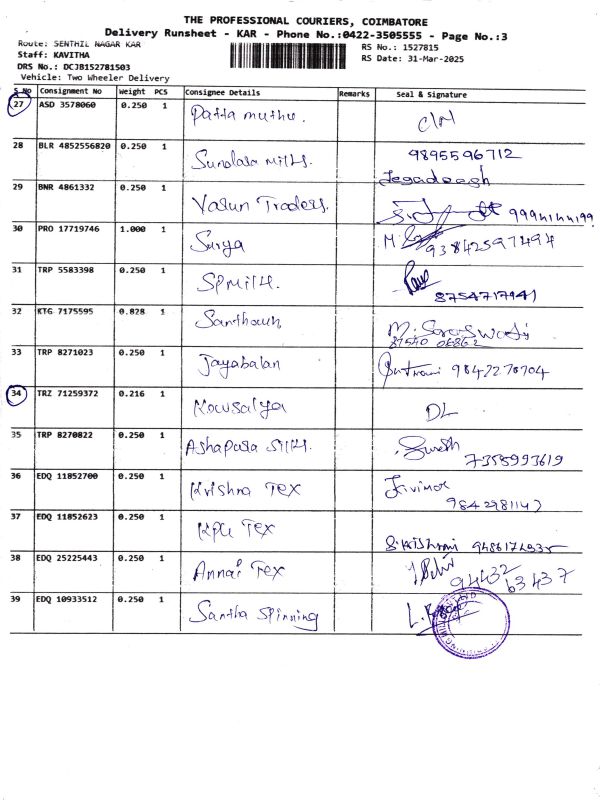 THE PROFESSIONAL COURIERS, COIMBATORE
Delivery Runsheet - KAR - Phone No.:0422-3505555 - Page No.:3
Route: SENTHIL NAGAR KAR
Staff: KAVITHA
DRS No.: DCJB152781503
Vehicle: Two Wheeler Delivery
RS No.: 1527815
RS Date: 31-Mar-2025
S No Consignment No Weight PCS Consignee Details Remarks Seal & Signature
27 ASD 3578060 0.250 1 Patta muthu. C/N
28 BLR 4852556820 0.250 1 Sundara Mills. 9895596712
Jegadeesh
29 BNR 4861332 0.250 1 Varun Traders.
30 PRO 17719746 1.000 1 Surya 93842597494
31 TRP 5583398 0.250 1 SP Mill. 8754717941
32 KTG 7175595 0.828 1 M. Saraswathi
33 TRP 8271023 0.250 1 Jayabalan 98422 70704
34 TRZ 71259372 0.216 1 Kowsalya DL
35 TRP 8270822 0.250 1 Ashapura Mill. Suresh
7358993619
36 EDQ 11852700 0.250 1 Krishna Tex
9842981147
37 EDQ 11852623 0.250 1 KPG Tex
38 EDQ 25225443 0.250 1 Annai Tex 94432
63437
39 EDQ 10933512 0.250 1 Santha Spinning